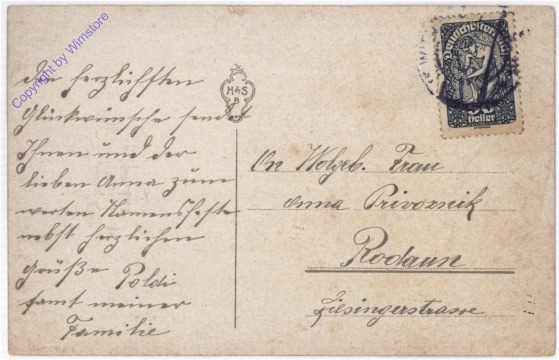 Die herzlichsten
Glückwünsche sendet
Ihnen und der
lieben Anna zum
werten Namensfeste
nebst herzlichen
Grüße Poldi
samt meiner
Familie
H & S
B
Deutschösterreich
Heller
An Wolgeb. Frau
Anna Privoznik
Rodaun
Liesingerstrasse
Copyright by Wimstore